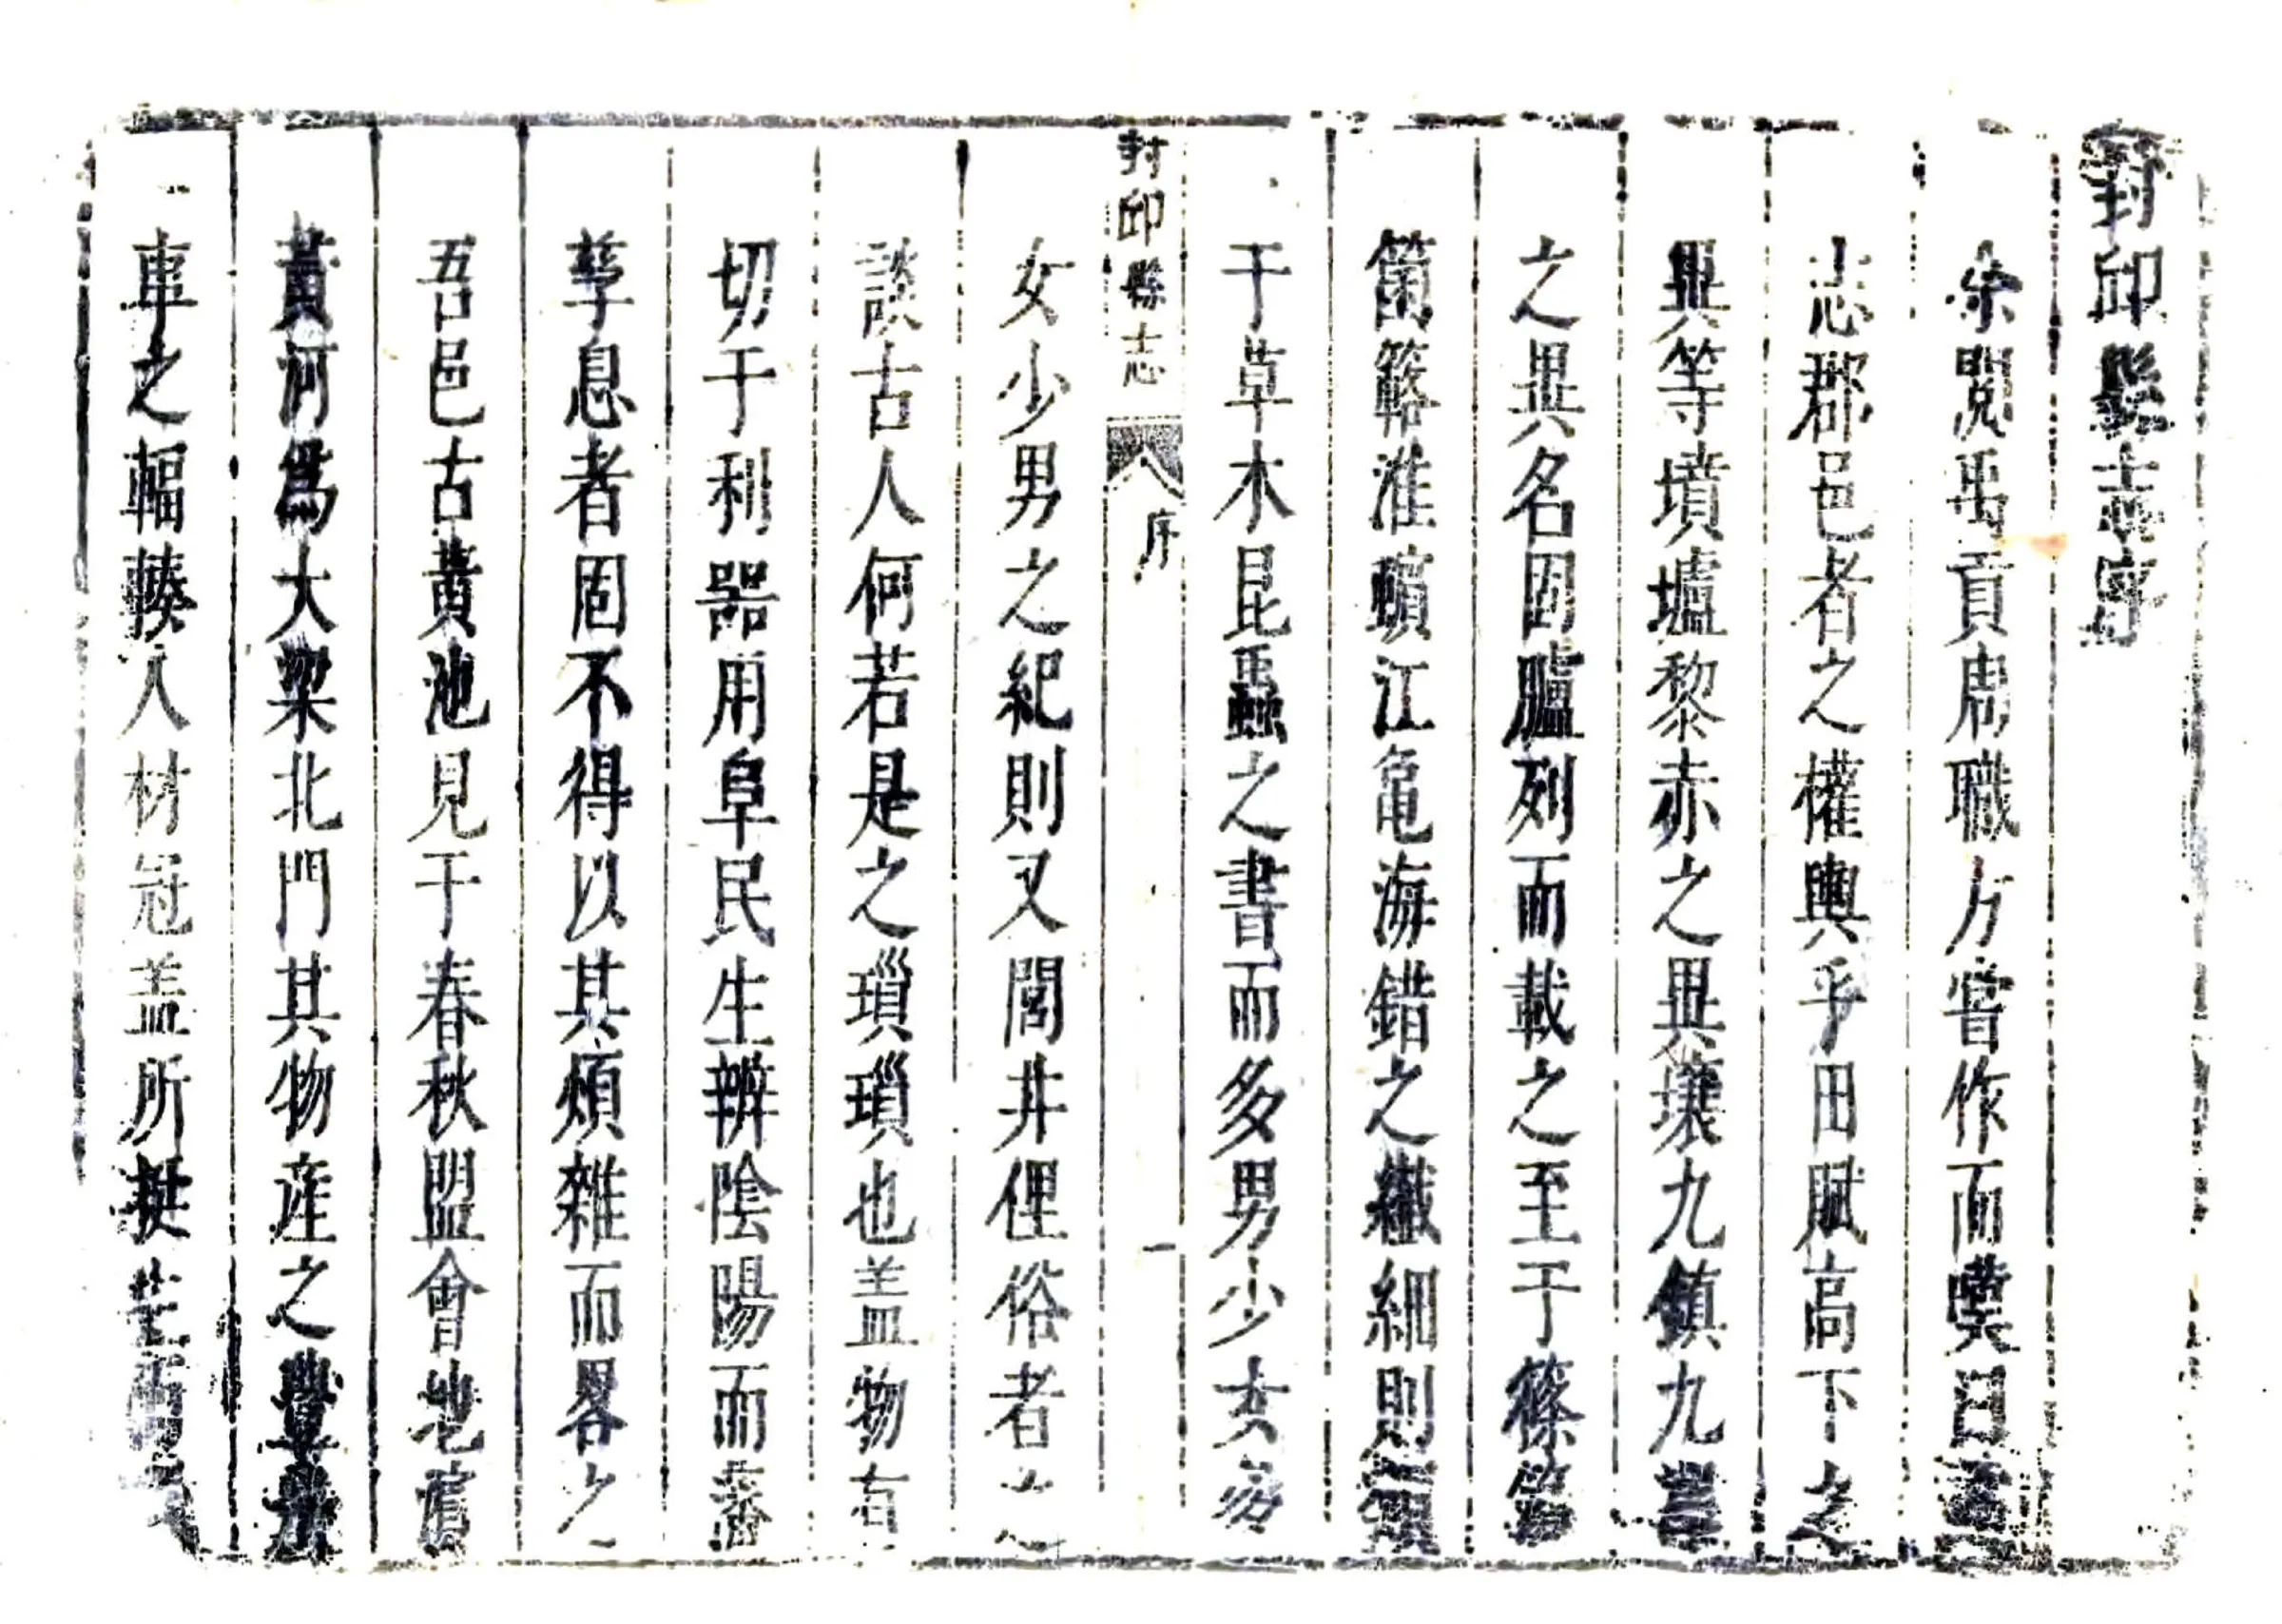 封邱縣志序
余閱禹貢周職方嘗作而嘆曰
志郡邑者之權輿乎田賦高下之
異等墳壚黎赤之異壤九鎮九
之異名固臚列而載之至于篠簜
箘簵淮蠙江龜海錯之纖細則類
于草木昆蟲之書而多男少女多
女少男之紀則又閭井俚俗者之
封邱縣志 序 一
談古人何若是之瑣瑣也盖物有
切于利器用阜民生辨陰陽而蕃
孳息者固不得以其煩雜而畧之
吾邑古黃池見于春秋盟會地濱
黃河爲大梁北門其物產之豐
車之輻輳人材冠盖所挺